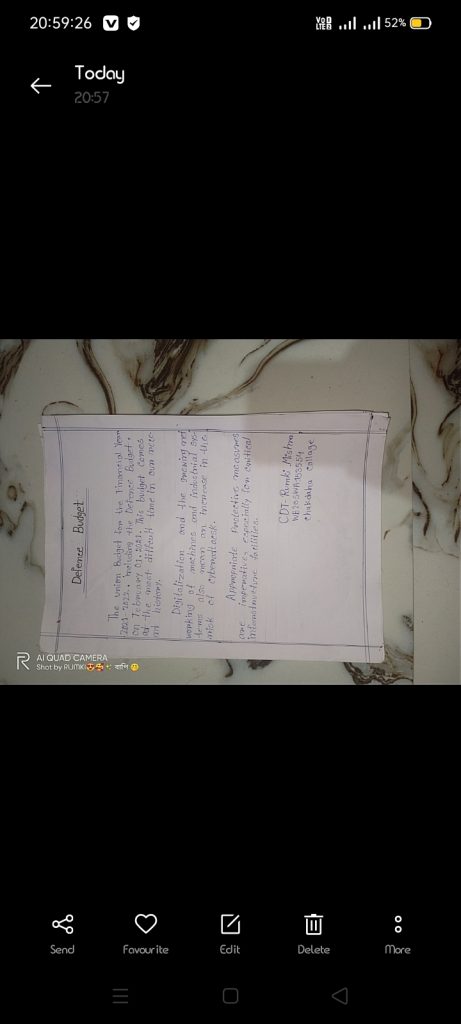 20:59:26
Vo LTE
52%
Today
20:57
Defence Budget
The union Budget for the Financial Year
2021-2022, including the Defence Budget,
on February 01, 2021. This budget comes
at the most difficult time in our
history.
Digitalization and the growing net
working of machines and industrial sys
tems also mean an increase in the
risk of cyberattack.
Appropriate Protective measures
are imperative, especially for critical
infrastructure facilities.
CDT- Rumki Mistra
Chakdaha College
AI QUAD CAMERA
Shot by RUMKI🥰🥰 রাখি
Send
Favourite
Edit
Delete
More